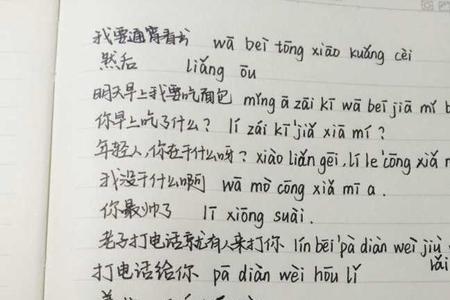 我要通宵看书 wā beì tōng xiāo kuǎng cèi
然后 liǎng ōu
明天早上我要吃面包 mǐng ā zāi kī wā beī jiā mí b
你早上吃了什么? lí zái kī'jiǎ xiā mí?
年轻人,你在干什么呀? xiào liǎn gēi, lí le'cōng xiǎ
我没干什么啊 wā mò cōng xiǎ mī a.
你最帅了 lī xiōng suài.
老子打电话就有人来打你 lín bēi'pà diàn weì jiù
lǎi
打电话给你 pā diàn wèi hōu lǐ